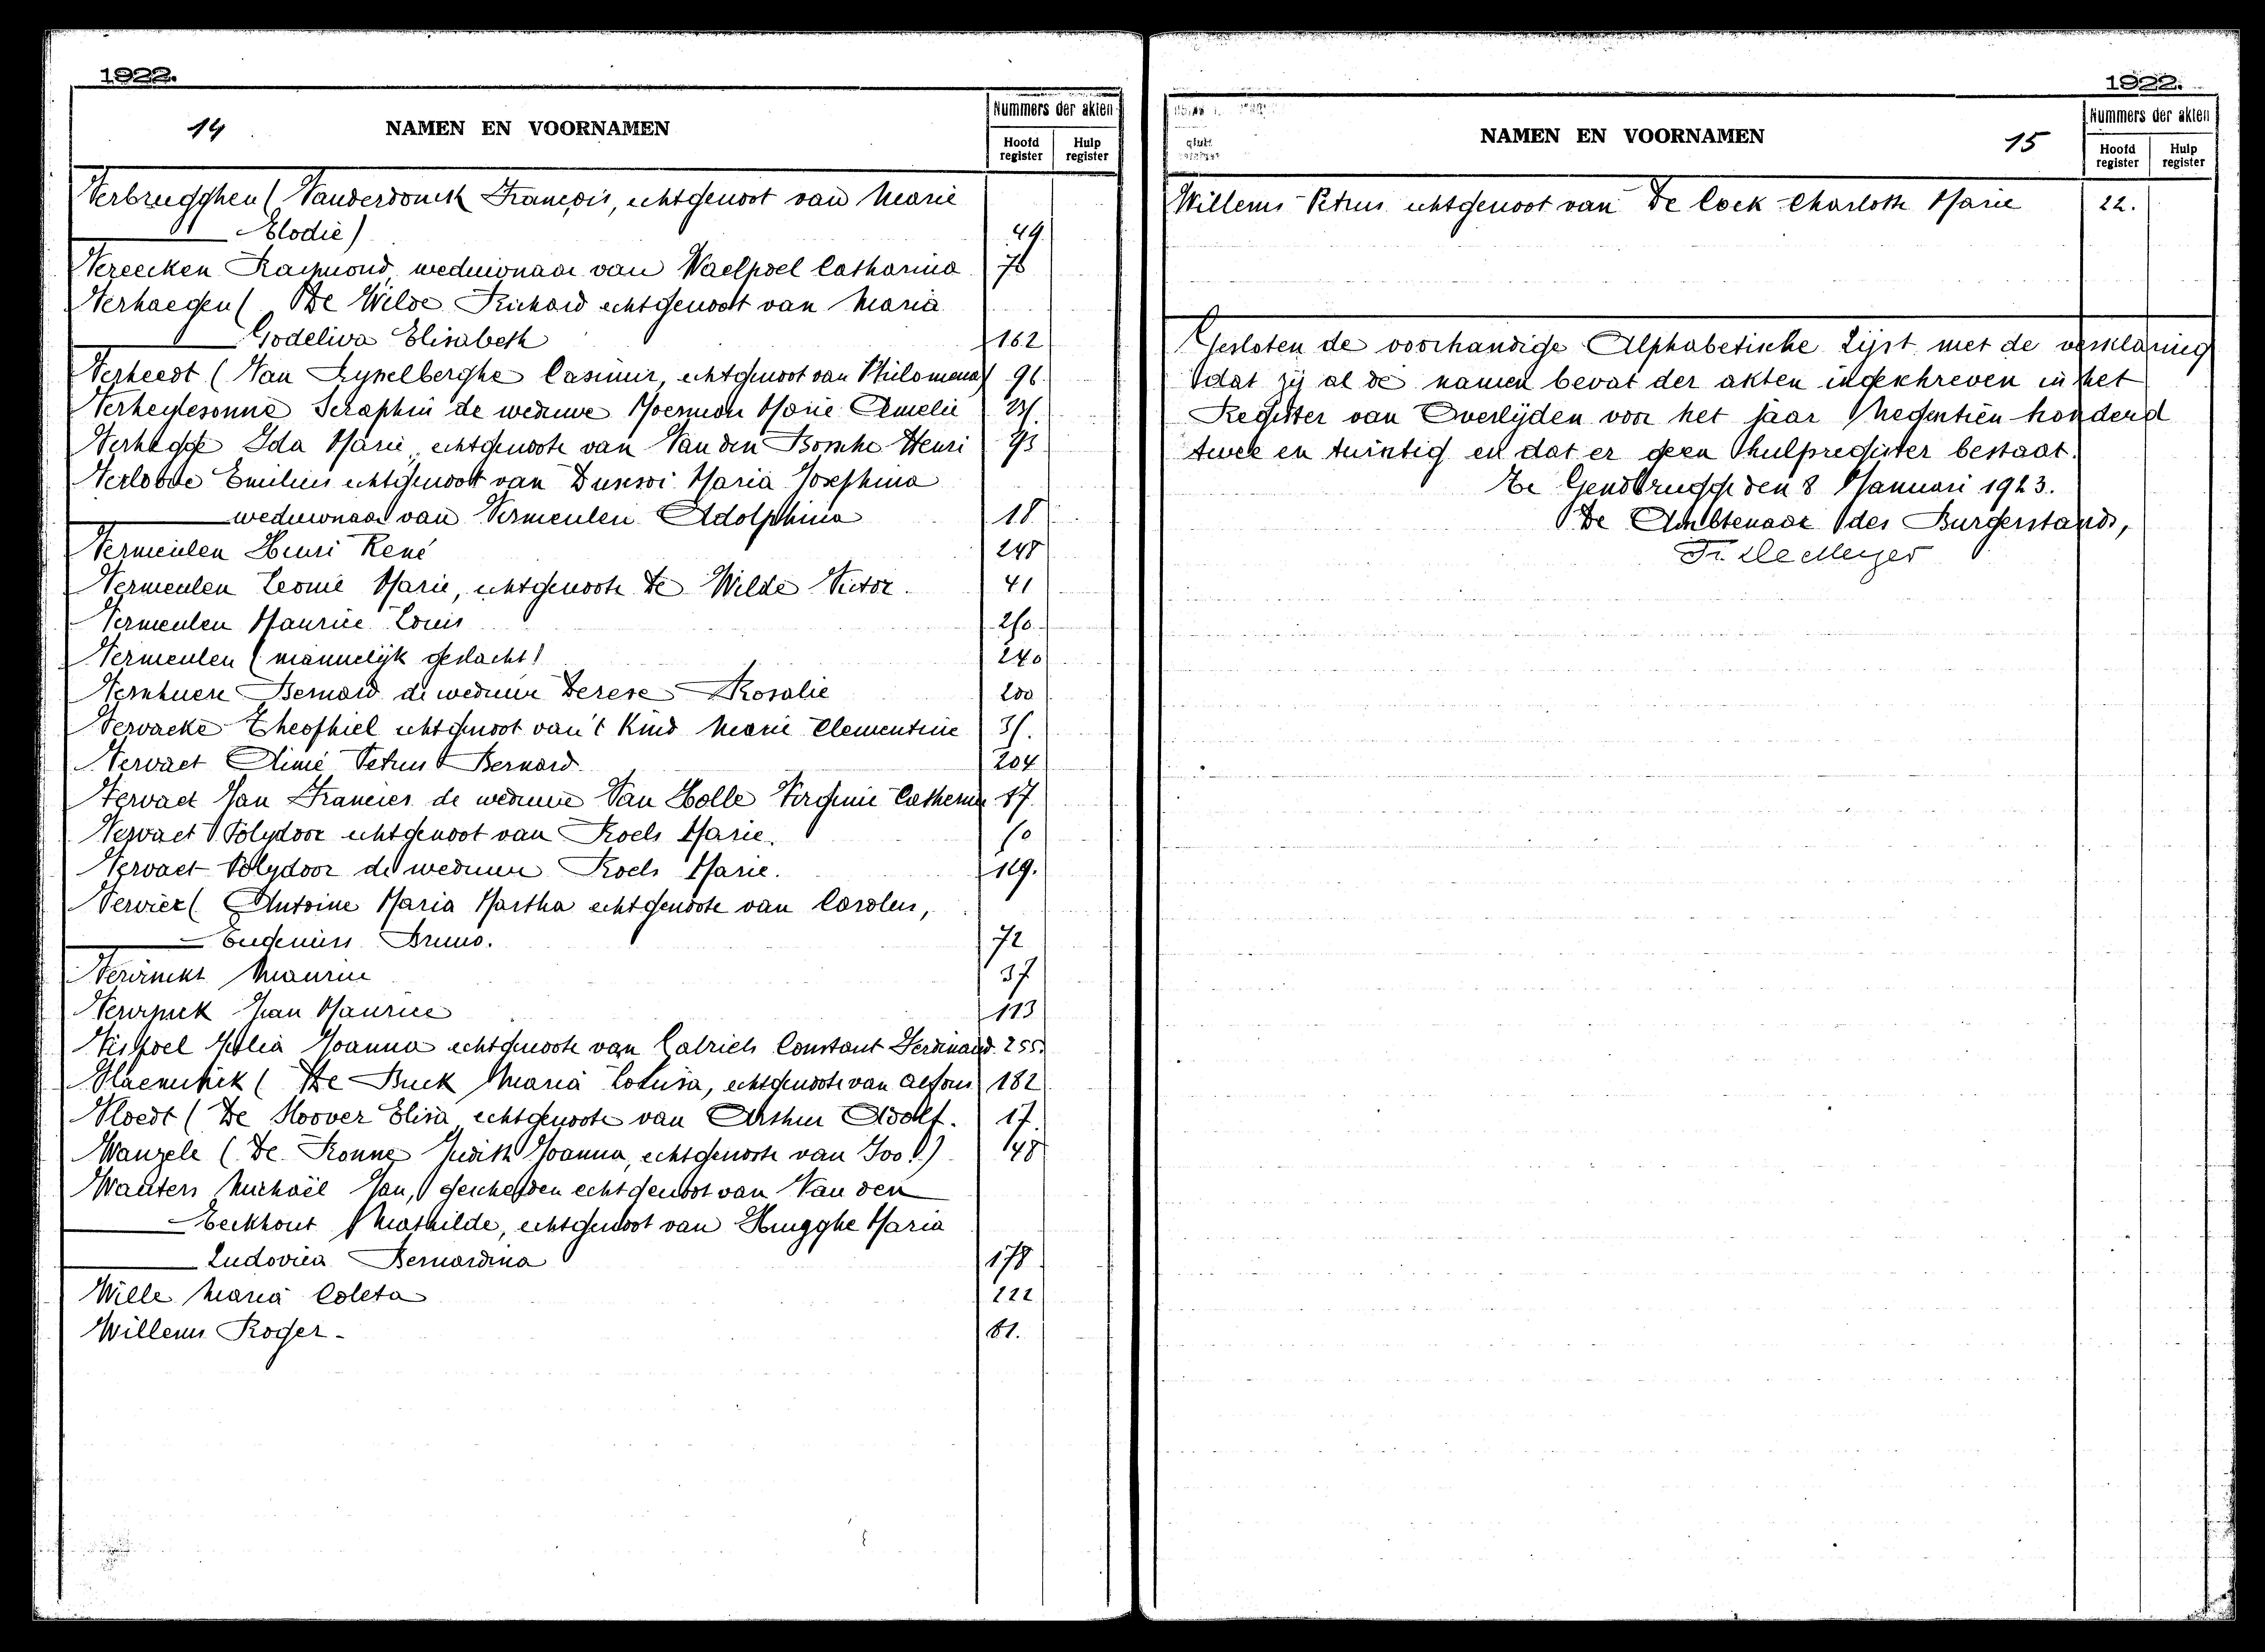 1922.
14
NAMEN EN VOORNAMEN
Nummers der akten
Hoofd register
Hulp register
Verbrugghen (Vanderdonck François, echtgenoot van Marie
Elodie) 49.
Vereecken Raymond weduwnaar van Waelpoel Catharina 76
Verhaegen ( De Wilde Richard echtgenoot van Maria
Godeliva Elisabeth 162
Verheedt (Van Rysselberghe Casimir, echtgenoot van Philomena) 96.
Seraphin de weduwe Moerman Marie Amelie
Verhegge Ida Marie echtgenoote van Van den Bossche Henri 93
Emilius echtgenoot van Maria Josephina
weduwnaar van Vermeulen Adolphina 18
Vermeulen Henri René 248
Vermeulen Leonie Marie, echtgenoote De Wilde Victor. 41
Vermeulen Maurice Louis
Vermeulen (mannelijk geslacht) 240
Bernard de weduwe Rosalie 200
Vervacke Theophiel echtgenoot van 't Kind Marie Clementine
Vervaet Aimé Petrus Bernard 204
Vervaet Jan Francies de weduwe Van Holle Virginie Catherine
Vervaet Polydoor echtgenoot van Roels Marie.
Vervaet Polydoor de weduwe Roels Marie. 119.
Vervier ( Antoine Maria Martha echtgenoote van Carolus,
Eugenius Bruno. 72
Maurice 37
Jan Maurice 113
Vispoel Julia Joanna echtgenoote van Calriels Constant Ferdinand. 255.
(De Buck Maria Lovisa, echtgenoote van Alfons 182
Vloedt (De Hoover Elisa echtgenoote van Arthur Adolf. 17.
Wanzele (De Ronne Judith Joanna, echtgenoote van Ivo.) 148
Wauters Michaël Jan, gescheiden echtgenoot van Van den
Eeckhout Mathilde, echtgenoot van Hmgghe Maria
Ludovica Bernardina 178
Wille Maria Coleta 222
Willems Roger - 61.
1922.
NAMEN EN VOORNAMEN
15
Nummers der akten
Hoofd register
Hulp register
Willems Petrus echtgenoot van De Cock Charlotte Marie 22.
Gesloten de voorhandige Alphabetische Lijst met de verklaring
dat zij al de namen bevat der akten ingeschreven in het
Register van Overlijden voor het jaar Negentien honderd
twee en twintig en dat er geen hulpregister bestaat.
Te Gendbrugge den 8 Januari 1923.
De Ambtenaar des Burgerstands,
Fr. De Meyer